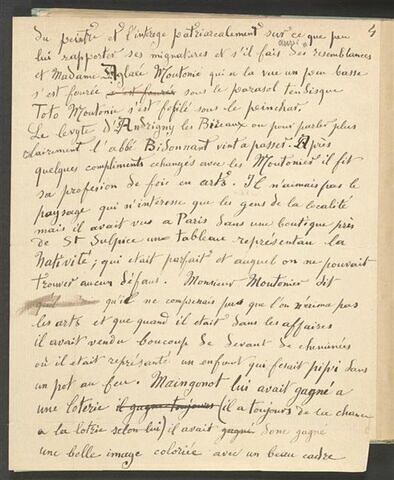 4
du peintre et l'intrege patriarcalement sur ce que peu
lui rapporter ses mignatures et s'il fais aussi des resemblances
et Madame Aglaée Moutonié qui a la vue un peu basse
s'est fourée s'est fourée sous le parasol tendisque
Toto Moutonié s'est fofilé sous le peinchar.
Le levyte d'Andrigny les Bizeaux ou pour parler plus
clairement l'abbé Bidonnant vint à passer. Après
quelques compliments echangés avec les Moutonier il fit
sa profesion de fois en arts. Il n'aimais pas le
paysage qui n'interesse que les gens de la localité
mais il avait vus a Paris dans une boutique près
de St Sulpice une tableau representan la
Nativité; qui etait parfait et auquel on ne pouvait
trouver aucun défaut. Monsieur Moutonier dit
qu'il ne comprenais pas que l'on n'aima pas
les arts et que quand il etait dans les affaires
il avait vendu boucoup de devant de cheminées
où il etait représenté un enfant qui fesait pipi dans
un pot au feu. Maingonot lui avait gagné a
une loterie il gagne toujours (il a toujours de la chance
a la lotrie selon lui) il avait gagné donc gagné
une belle image coloriée avec un beau cadre